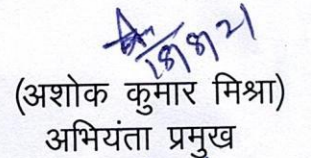 18/8/21
(अशोक कुमार मिश्रा)
अभियंता प्रमुख